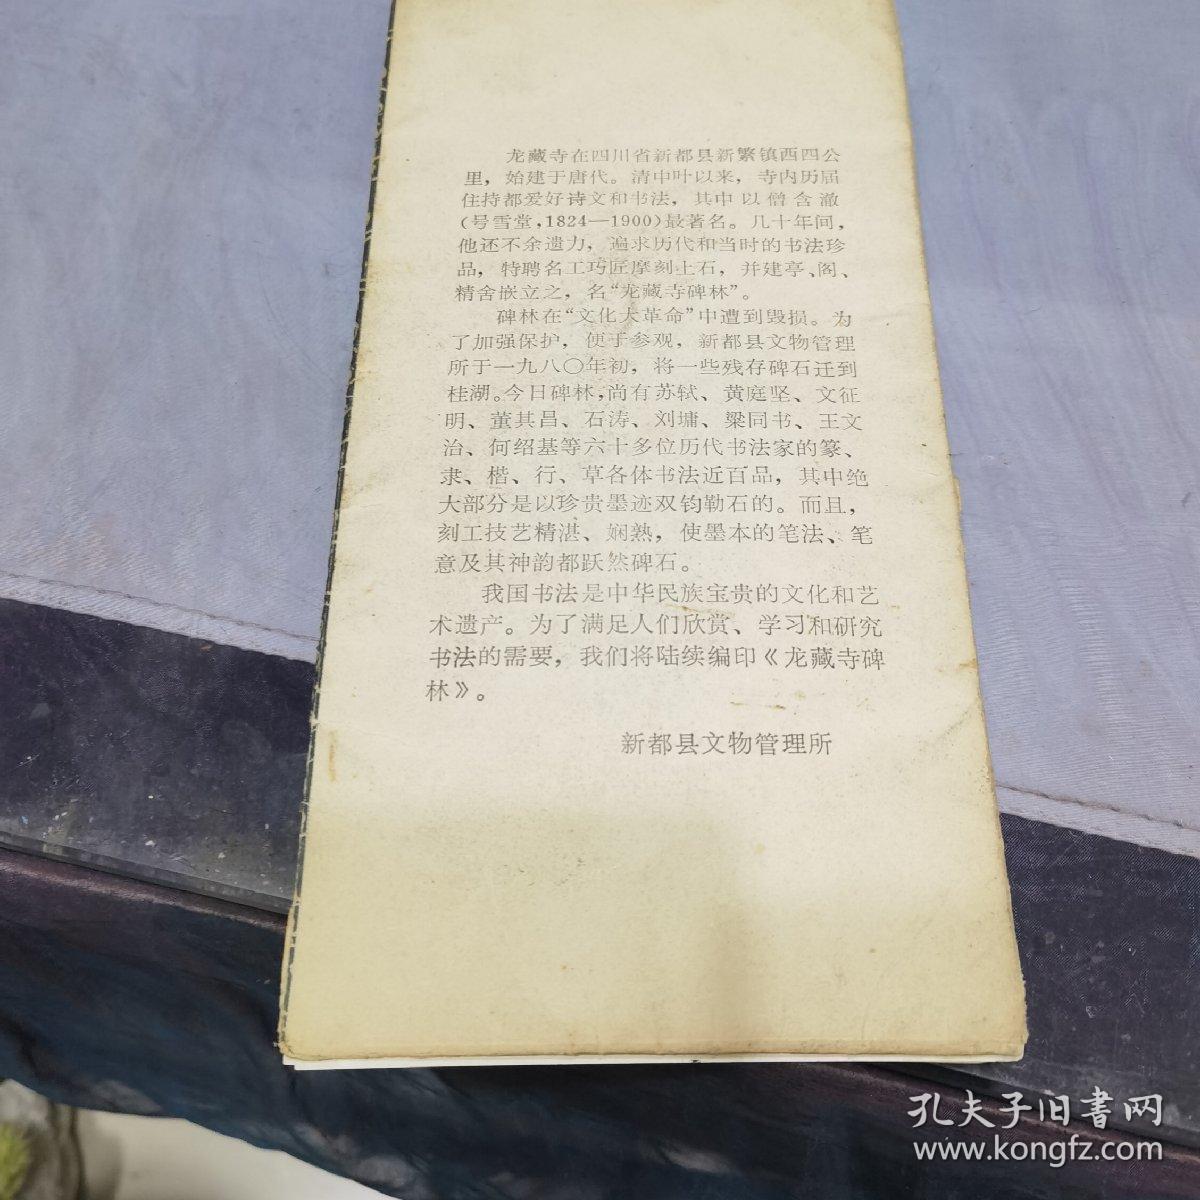 龙藏寺在四川省新都县新繁镇西四公
里，始建于唐代。清中叶以来，寺内历届
住持都爱好诗文和书法，其中以僧含澈
(号雪堂，1824—1900)最著名。几十年间，
他还不余遗力，遍求历代和当时的书法珍
品，特聘名工巧匠摩刻上石，并建亭、阁、
精舍嵌立之，名“龙藏寺碑林”。
碑林在“文化大革命”中遭到毁损。为
了加强保护，便于参观，新都县文物管理
所于一九八〇年初，将一些残存碑石迁到
桂湖。今日碑林，尚有苏轼、黄庭坚、文征
明、董其昌、石涛、刘墉、梁同书、王文
治、何绍基等六十多位历代书法家的篆、
隶、楷、行、草各体书法近百品，其中绝
大部分是以珍贵墨迹双钩勒石的。而且，
刻工技艺精湛、娴熟，使墨本的笔法、笔
意及其神韵都跃然碑石。
我国书法是中华民族宝贵的文化和艺
术遗产。为了满足人们欣赏、学习和研究
书法的需要，我们将陆续编印《龙藏寺碑
林》。
新都县文物管理所
孔夫子旧書网
www.kongfz.com